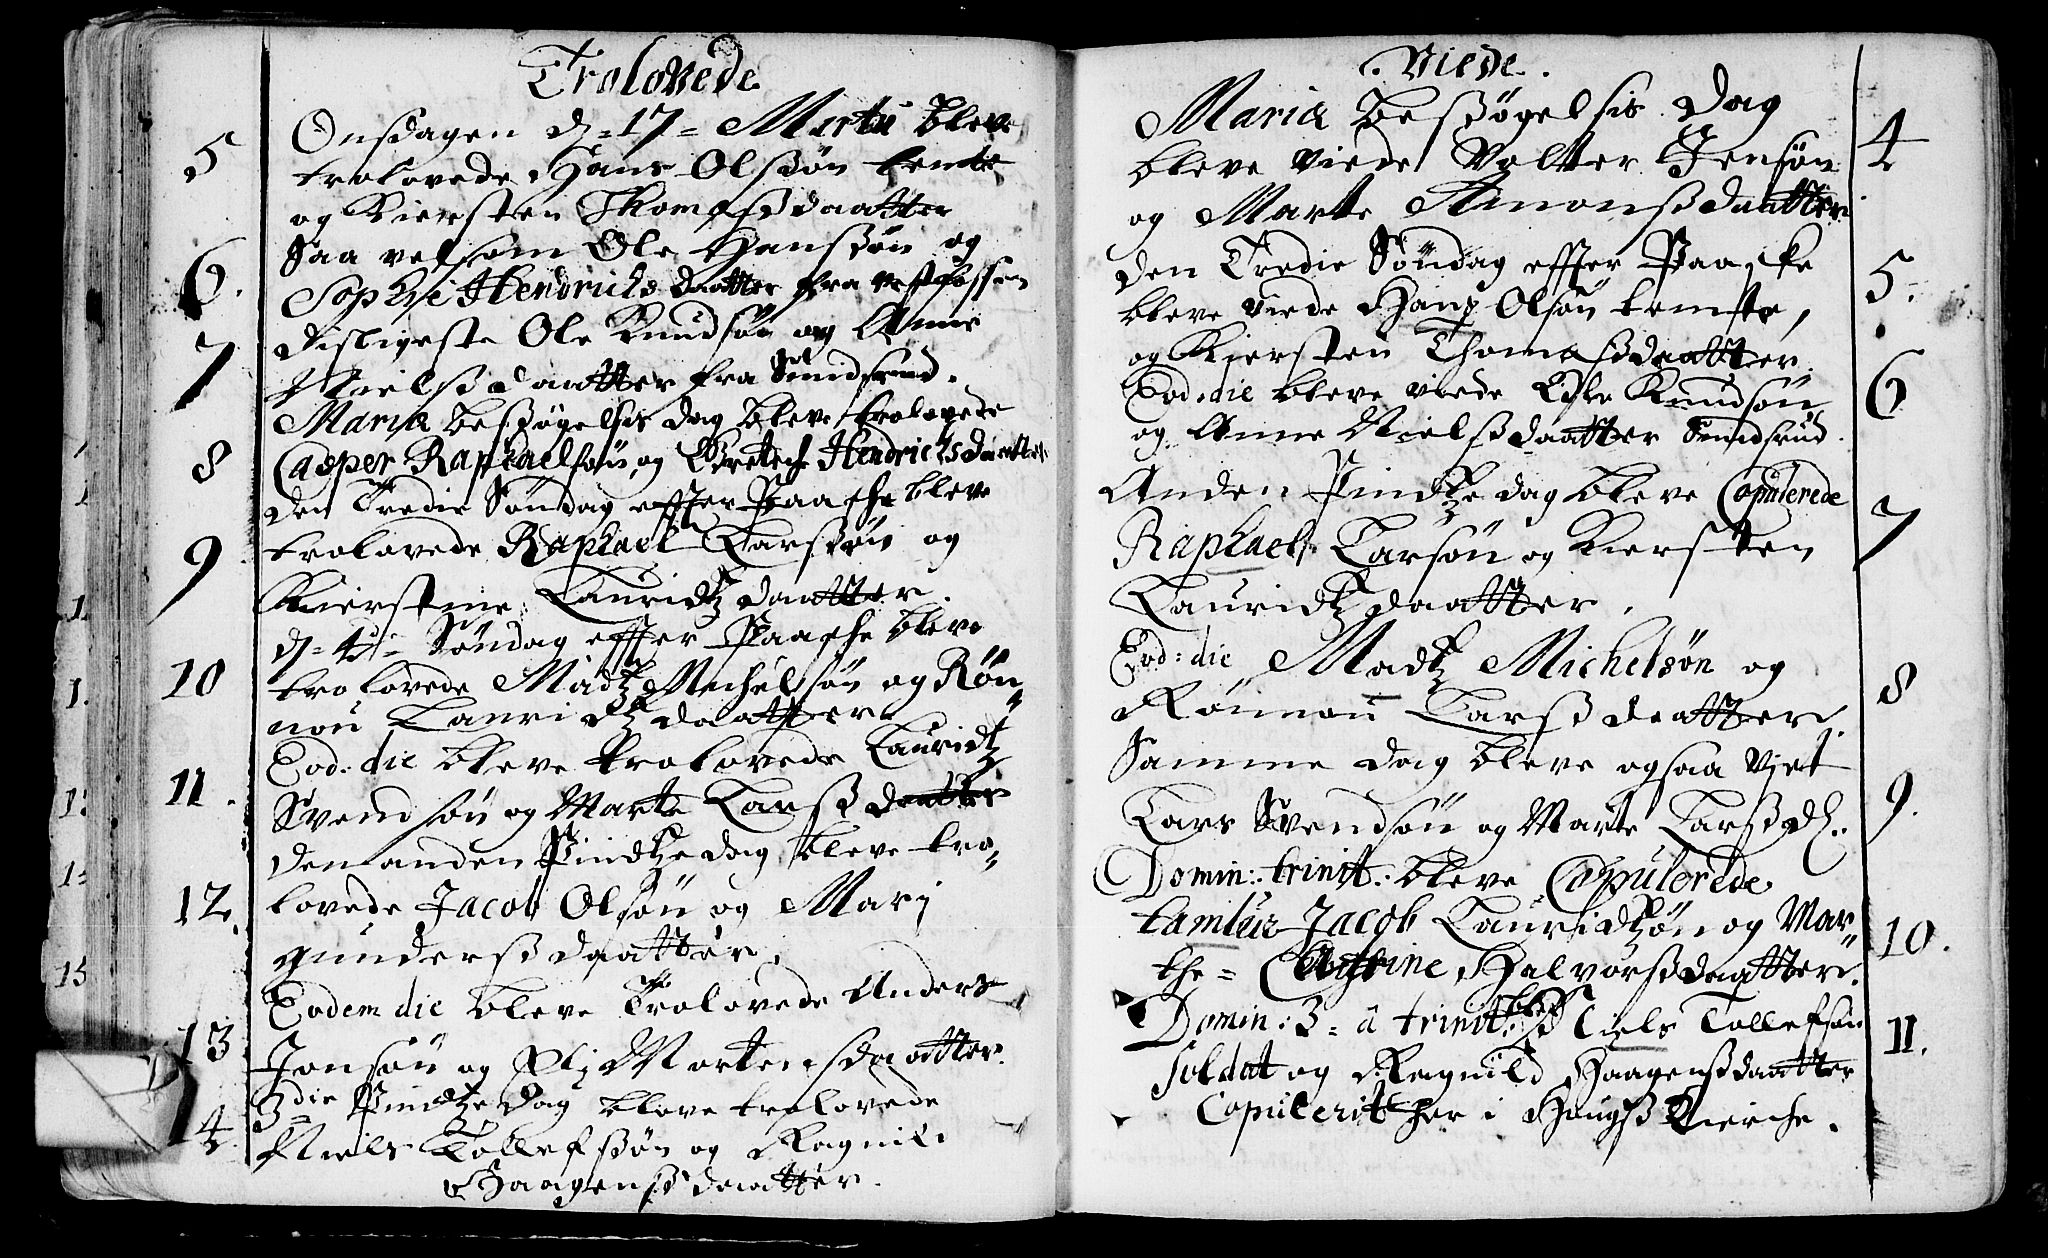 Trolovede
5
Onsdagen d. 17 = Martii bleve
trolovede Hans Olssøn temte
og Kiersten Thomassdaatter
6.
Saa velsom Ole Hanssøn og
Sophie Hendrichsdaatter fra vestfossen
7
disligeste Ole Knudsøn og Anne
Nielssdaatter fra Sundsrud.
8
Mariæ besøgelsis dag bleve trolovede
Casper Raphaelsøn og Hendrichsdaatter
den Tredie Søndag effter Paasche bleve
9
trolovede Raphael Larssøn og
Kierstine Lauridtzdaatter.
d. 4de Søndag effter Paasche bleve
10
trolovede Madtz Michelsøn og Røn„
nou Lauridtzdaatter
11.
Eod: die bleve trolovede Lauridtz
Svendsøn og Marte Larssdaatter
den anden Pindtzedag bleve tro„
12.
lovede Jacob Olsøn og Mari
gunderssdaatter.
Eodem die bleve Trolovede Anders
13
Jonsøn og Mortensdaatter.
3die Pindtzedag bleve trolovede
14.
Niels Tollefssøn og Ragnild
Haagenssdaatter.
Viede.
Mariæ besøgelsis Dag
4
bleve viede Volter Jensøn
og Marte Amonssdaatter
den Tredie Søndag effter Paaske
5.
bleve viede Hans Olsøn temte,
og Kiersten Thomassdaatter.
Eod: die bleve viede Ole Knudsøn
6
og Anne Nielssdaatter Sundsrud.
Anden Pindtzedag bleve Copulerede
7
Raphael Larsøn og Kiersten
Lauridtzdaatter.
Eod: die Madtz Michelsøn og
8
Rønnau Larssdaatter.
Samme dag bleve ogsaa viet
Lars Svendsøn og Marte Larssd.
9.
Domin: trinit: bleve Copulerede
Jacob Lauridtzøn og Mar„
10.
the = Cathrine Halvorssdaatter.
Domin: 3 = â trinit: Niels Tollefsøn
11.
soldat og Ragnild Haagenssdaatter
Copulerit her i Haugs Kierche.